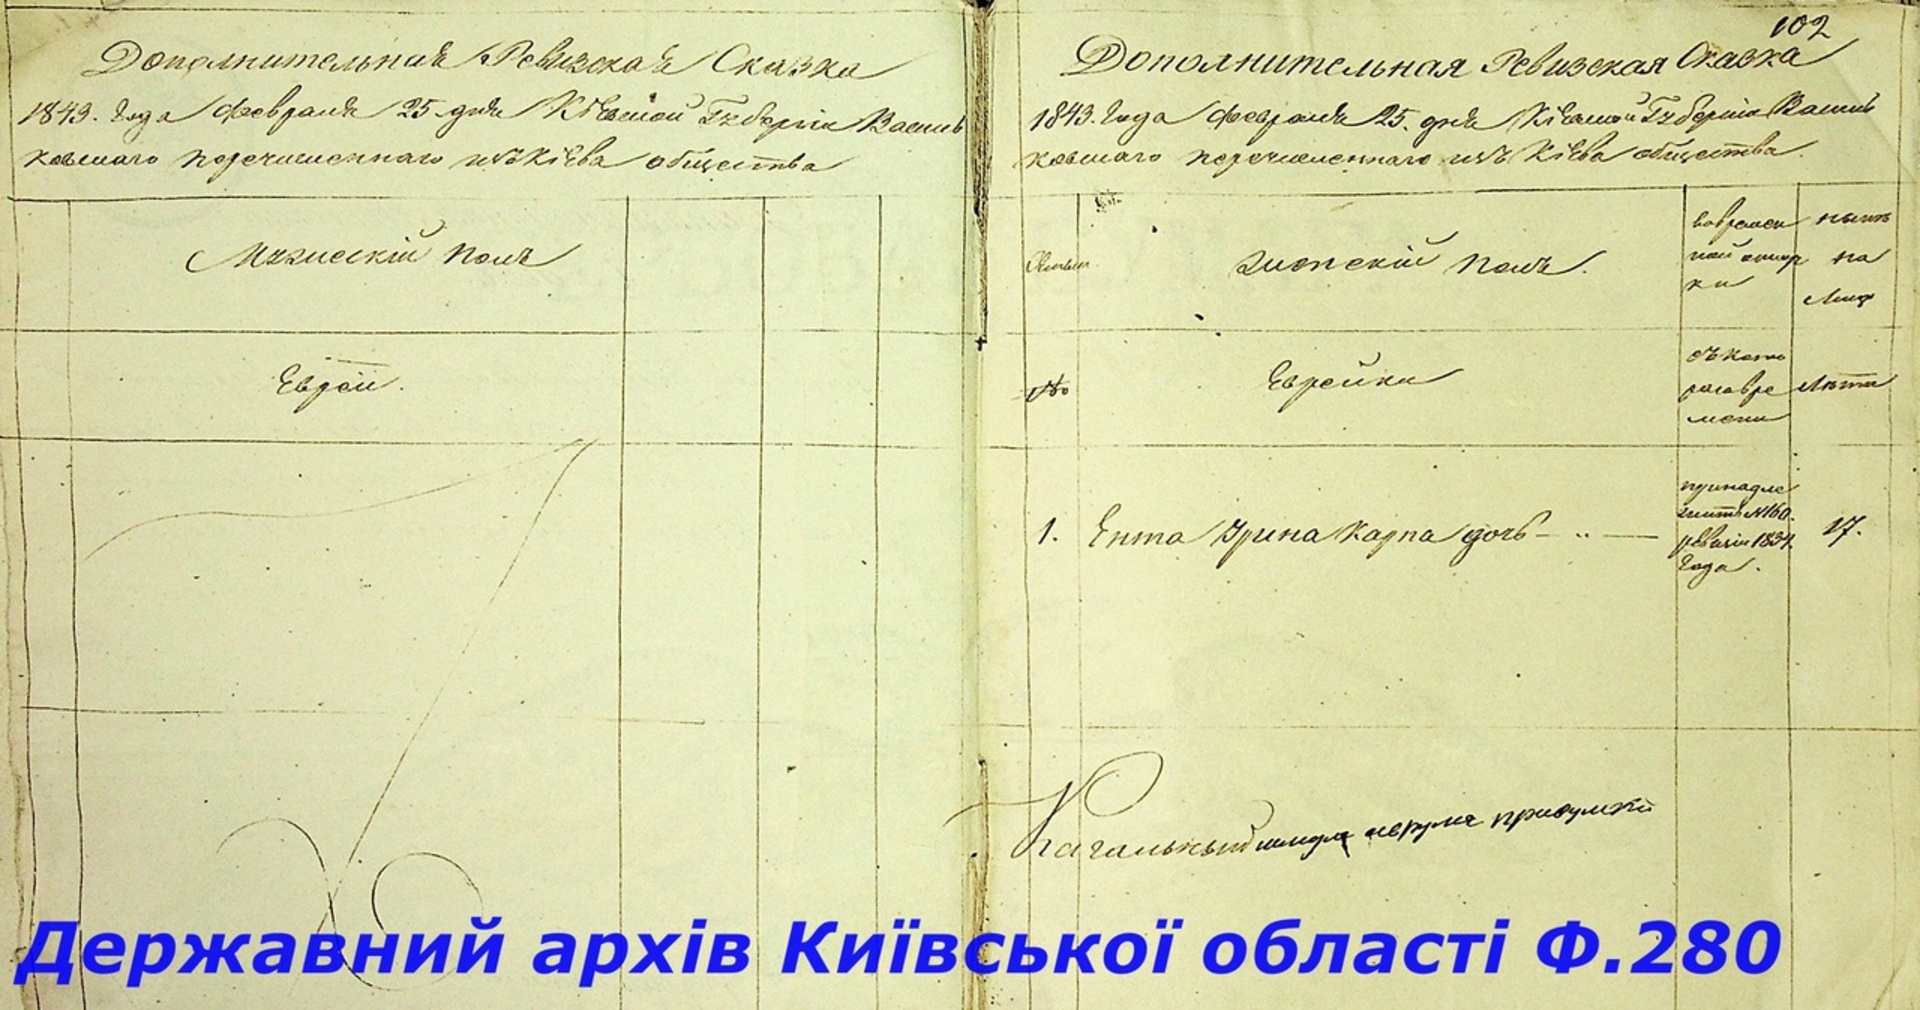 Дополнительная Ревизская Сказка
1843. Года Февраля 25. дня Кіевской Губерніи Василь
ковскаго перечисленнаго изъ Кіева общества
Мужескій полъ
Евреи.
102
Дополнительная Ревизская Сказка
1843. Года Февраля 25. дня Кіевской Губерніи Василь
ковскаго перечисленнаго изъ Кіева общества.
Семьи
Женскій полъ.
вовремен
ной отлуч
ки
нынѣ
на
Лицо
№
Еврейки
съ кото
раго вре
мени
Лѣта
1. Ента Ирина Карпа дочь
принадле
житъ №160.
ревизіи 1834.
Года.
17.
Кагальный
Державний архів Київської області Ф.280